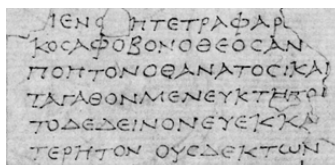 ΜΕΝΟ ΗΤΕΤΡΑΦΑΡ
ΚΟΣΑΦΟΒΟΝΟΘΕΟΣΑΝ
ΠΟΠΤΟΝΟΘΑΝΑΤΟΣΚΑΙ
ΤΑΓΑΘΟΝΜΕΝΕΥΚΤΗ
ΤΟΔΕΔΕΙΝΟΝΕΥΕΚΚΑ
ΤΕΡΗΤΟΝ ΟΥΣΔΕΚΤΩΝ